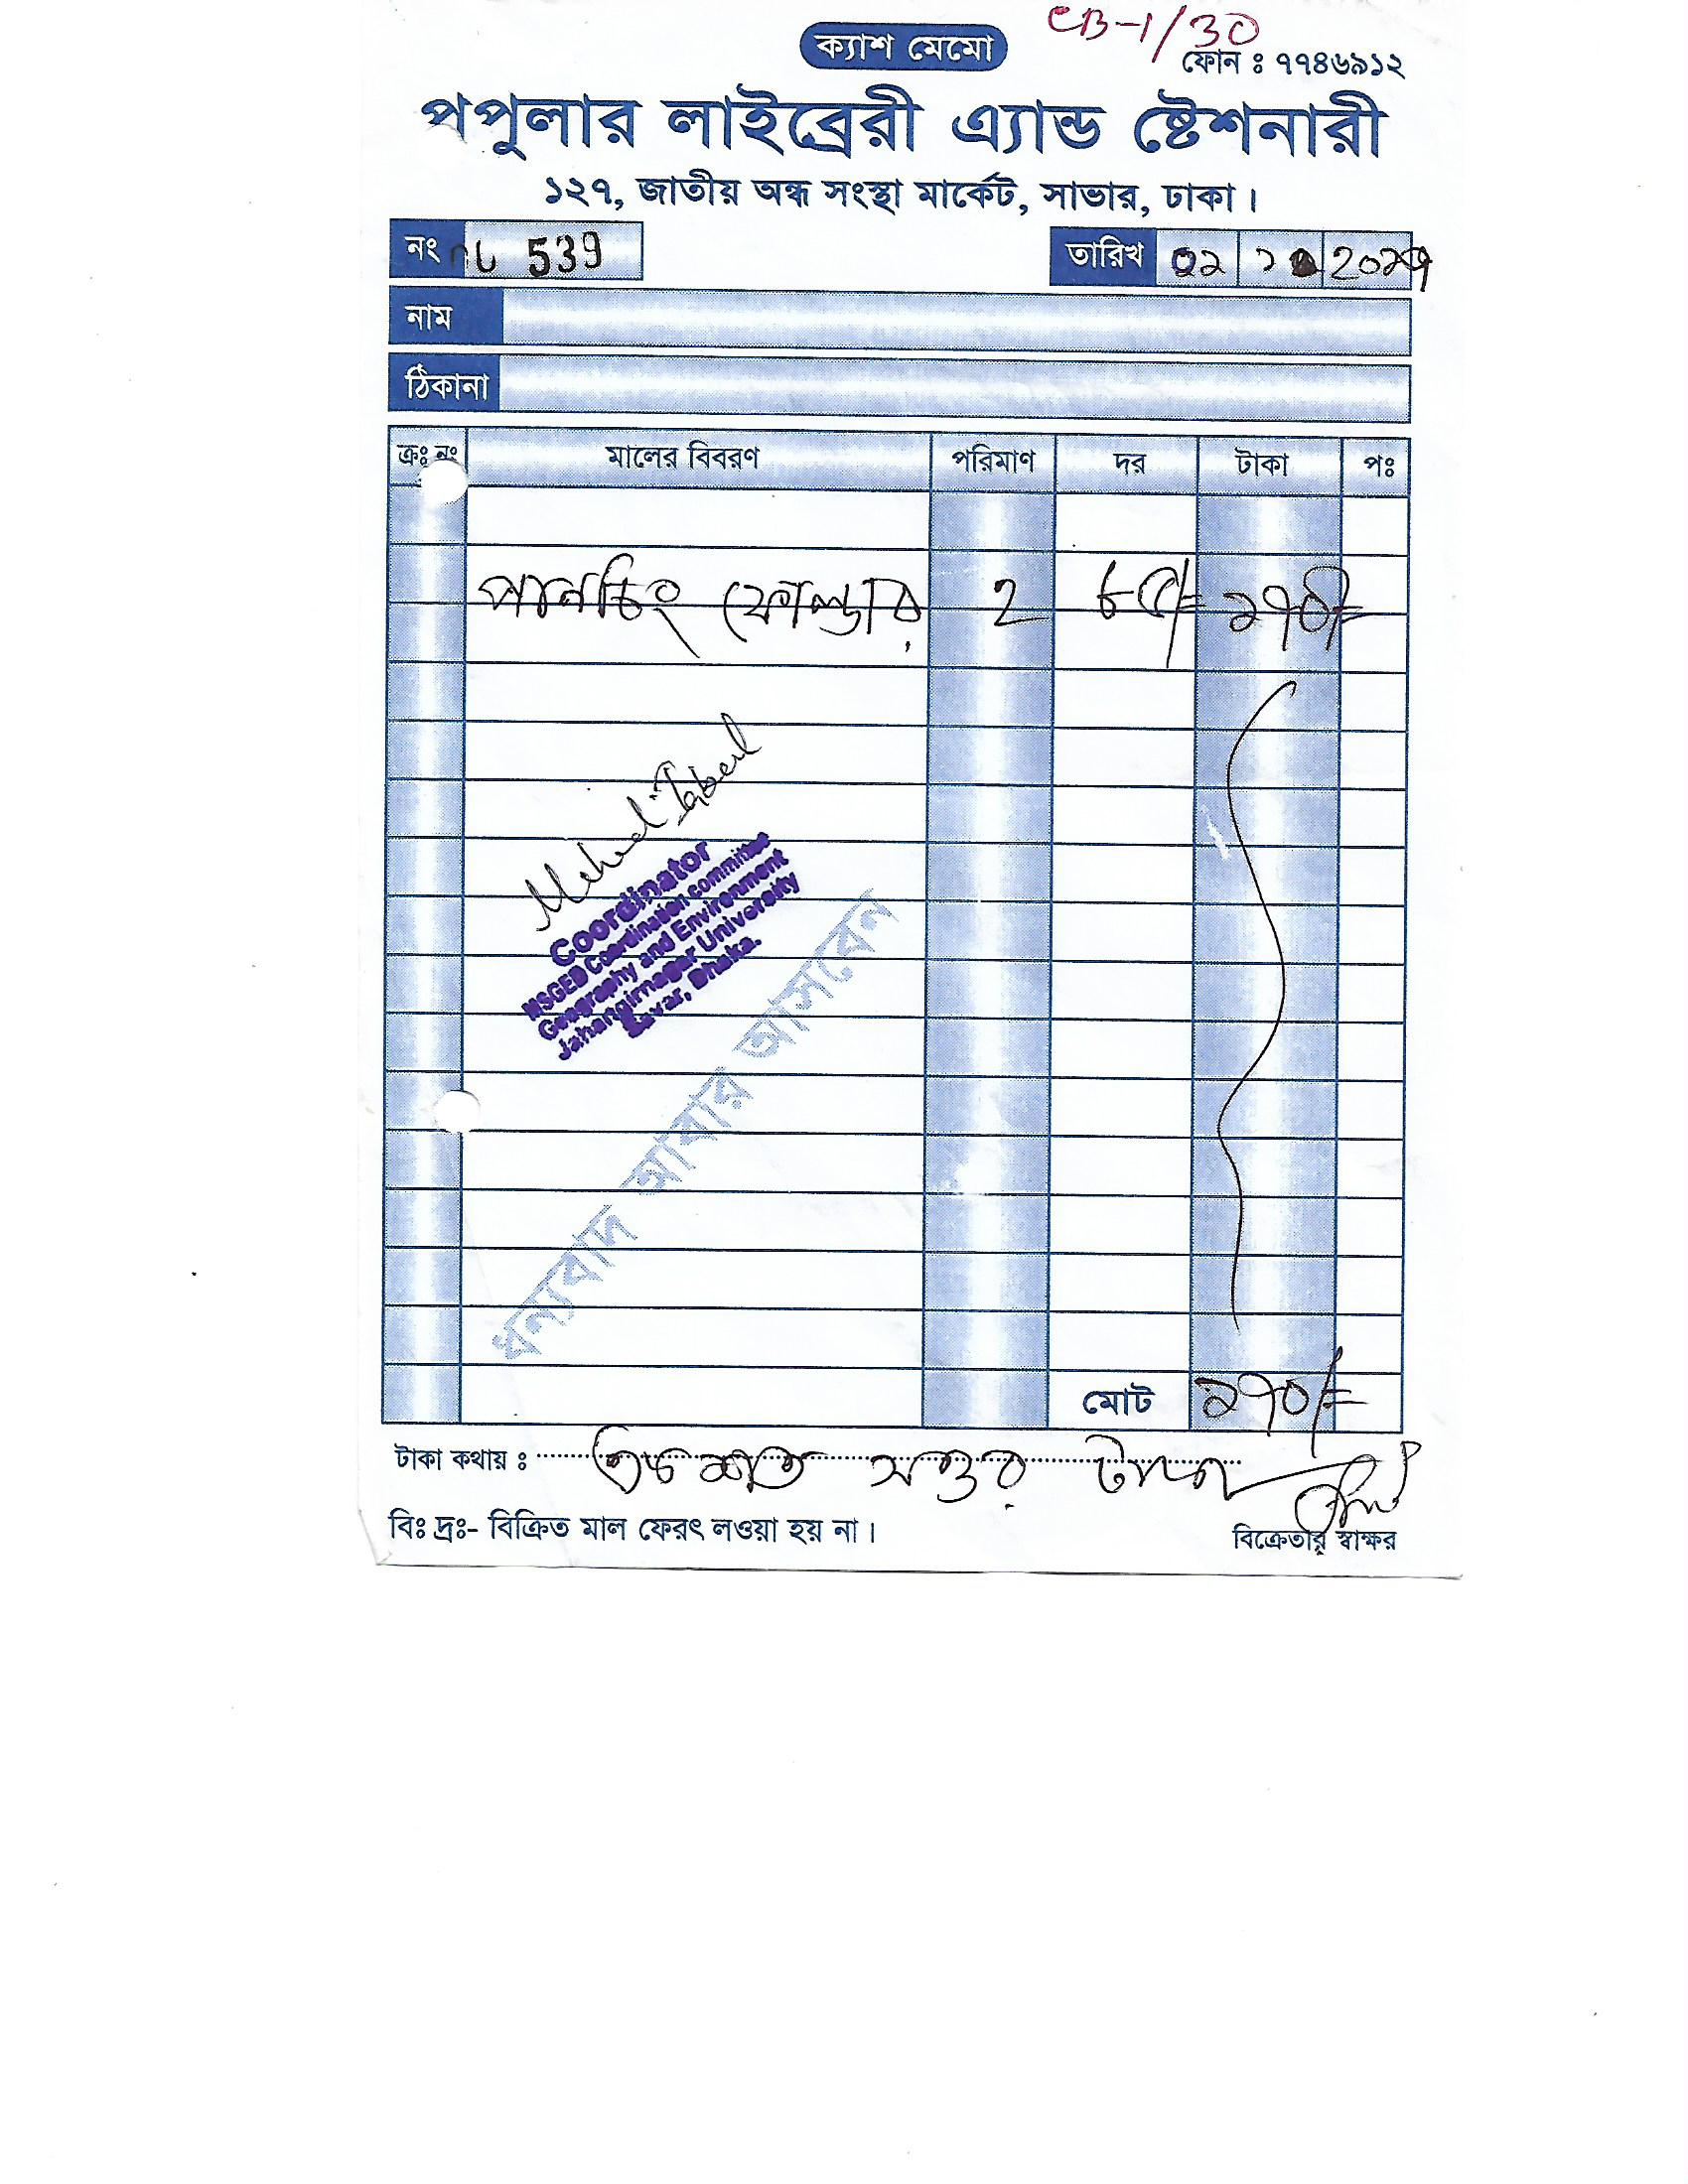 CB-1/30
ক্যাশ মেমো
ফোন ঃ ৭৭৪৬৯১২
পপুলার লাইব্রেরী এ্যান্ড ষ্টেশনারী
১২৭, জাতীয় অন্ধ সংস্থা মার্কেট, সাভার, ঢাকা।
নং 539 তারিখ 02
নাম
ঠিকানা
ক্রঃ নং মালের বিবরণ পরিমাণ দর টাকা পঃ
পানচিং ফোল্ডার 2 ৮৫/= ১৭০/=
Mehedi Iqbal
Coordinator
MSGED Coordination committee
Geography and Environment
Jahangirnagar University
Savar, Dhaka.
ধন্যবাদ আবার আসবেন
মোট ১৭০/=
টাকা কথায় ঃ একশত সত্তর টাকা
বিঃ দ্রঃ- বিক্রিত মাল ফেরৎ লওয়া হয় না।
বিক্রেতার স্বাক্ষর